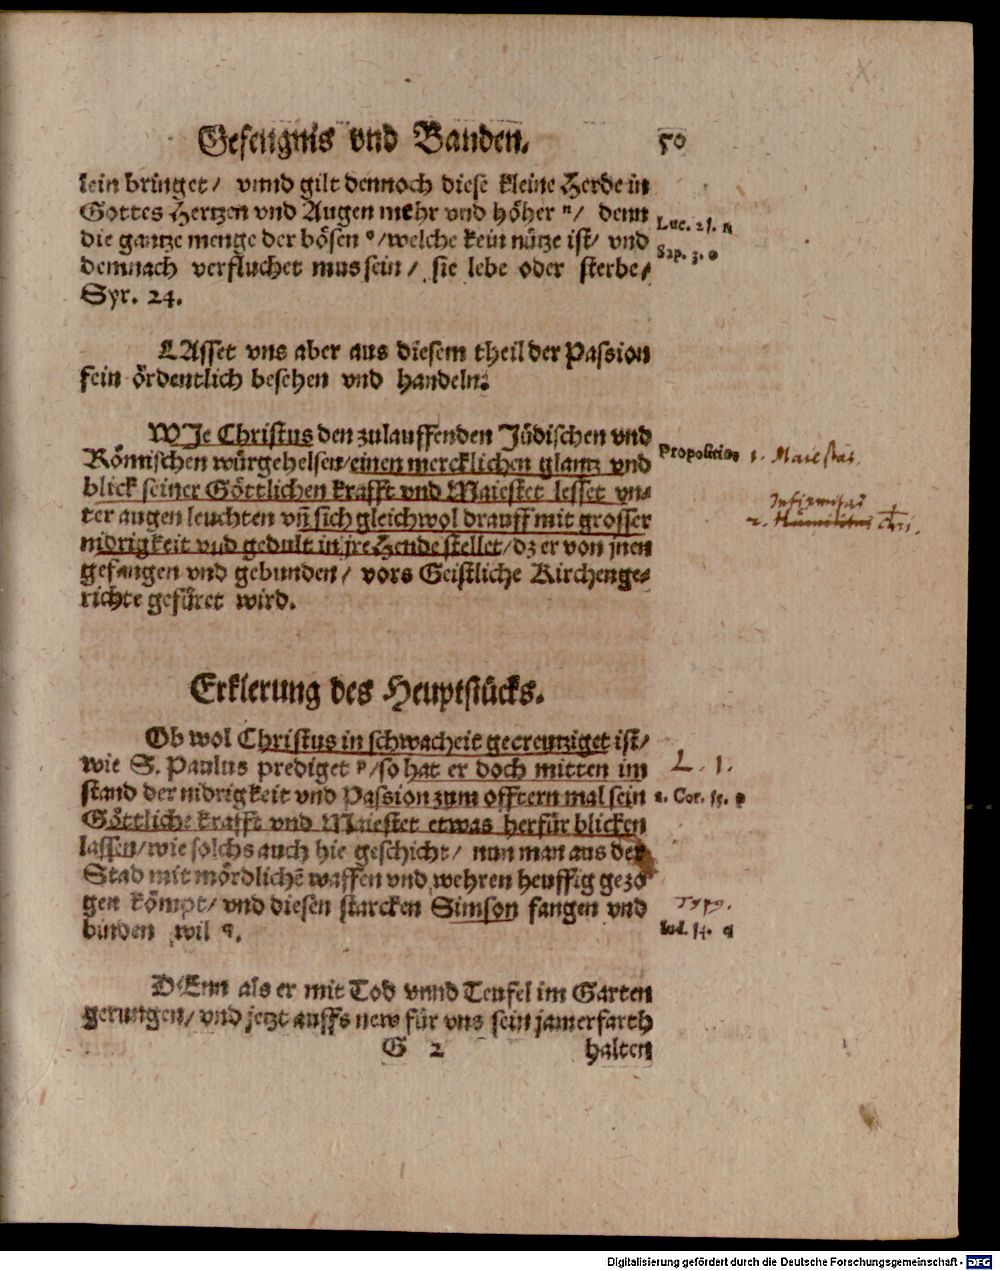 Gefengnis vnd Banden. 50
lein bringet/ vnnd gilt dennoch diese kleine Herde in
Gottes Hertzen vnd Augen mehr vnd höher ⁿ/ denn
Luc. 21. n
die gantze menge der bösen °/welche kein nütze ist/ vnd
Sap. 3. o
demnach verfluchet mus sein/ sie lebe oder sterbe/
Syr. 24.
LAsset vns aber aus diesem theil der Passion
fein ördentlich besehen vnd handeln.
WJe Christus den zulauffenden Jüdischen vnd
Römischen würgehelsen/einen mercklichen glantz vnd
Propositio 1. Maiestas.
blick seiner Göttlichen krafft vnd Maiestet lesset vn-
Infirmitas
ter augen leuchten vñ sich gleichwol drauff mit grosser
2. Humilitas Chri.
nidrigkeit vnd gedult in jre Hende stellet/dz er von jnen
gefangen vnd gebunden/ vors Geistliche Kirchenge-
richte gefüret wird.
Erklerung des Heuptstücks.
Ob wol Christus in schwacheit gecreutziget ist/
wie S. Paulus prediget ᵖ/so hat er doch mitten im
L. 1.
stand der nidrigkeit vnd Passion zum offtern mal sein
2. Cor. 13. p
Göttliche krafft vnd Maiestet etwas herfür blicken
lassen/wie solchs auch hie geschicht/ nun man aus der
Stad mit mördlichē waffen vnd wehren heuffig gezo
gen kömpt/ vnd diesen starcken Simson fangen vnd
Typ9.
binden wil q.
Iud. 15. q
DEnn als er mit Tod vnnd Teufel im Garten
gerungen/ vnd jetzt auffs new für vns sein jamerfarth
G 2 halten
Digitalisierung gefördert durch die Deutsche Forschungsgemeinschaft - DFG